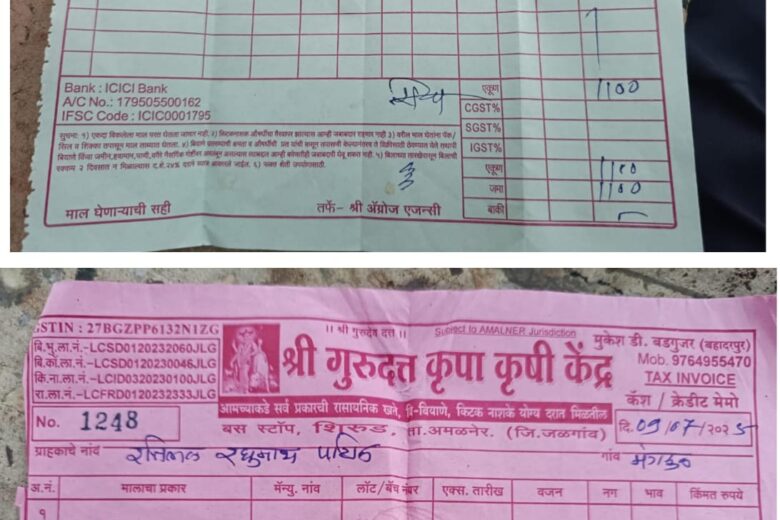 Bank : ICICI Bank
A/C No.: 179505500162
IFSC Code : ICIC0001795
एकूण 1100
CGST%
SGST%
IGST%
एकूण 1100
जमा 1100
बाकी
सुचना: १) एकदा विकलेला माल परत घेतला जाणार नाही.
माल घेणाऱ्याची सही
तर्फे- श्री ॲग्रोज एजन्सी
GSTIN : 27BGZPP6132N1ZG
|| श्री गुरुदेव दत्त ||
Subject to AMALNER Jurisdiction
मुकेश डी. बडगुजर (बहादरपुर)
Mob. 9764955470
TAX INVOICE
कॅश / क्रेडीट मेमो
बि.भु.ला.नं.-LCSD0120232060JLG
बि.कॉ.ला.नं.-LCSD0120230046JLG
कि.ना.ला.नं.-LCID0320230100JLG
रा.ला.नं.-LCFRD0120232333JLG
श्री गुरुदत्त कृपा कृषी केंद्र
आमच्याकडे सर्व प्रकारची रासायनिक खते, बि-बियाणे, किटक नाशके योग्य दरात मिळतील
No. 1248
बस स्टॉप, शिरुड, ता.अमळनेर. (जि.जळगांव)
दि. 09/07/2025
ग्राहकाचे नांव रघुनाथ
गांव
अ.नं. मालाचा प्रकार मॅन्यु. नांव लॉट/बॅच नंबर एक्स. तारीख वजन नग भाव किंमत रुपये
१